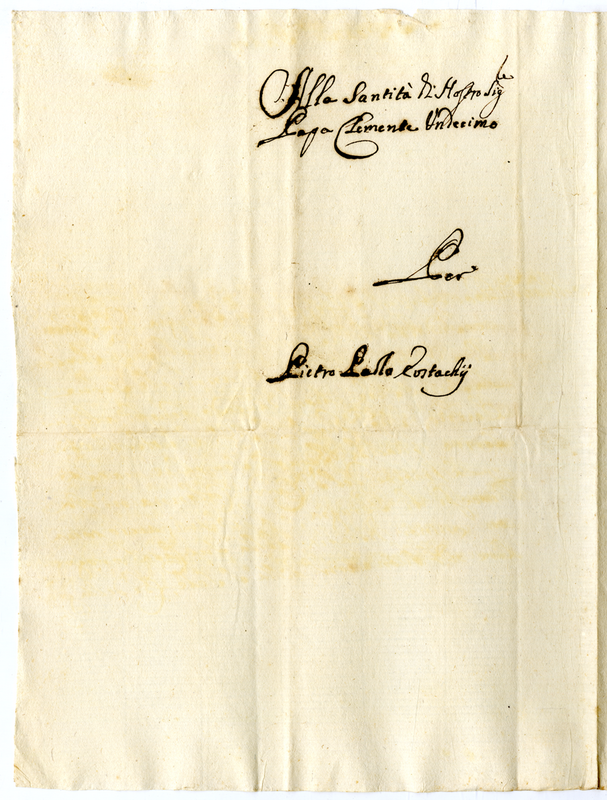 Alla Santità di Nostro Sig.re
Papa Clemente Undecimo
Per
Pietro Paolo Eostachij